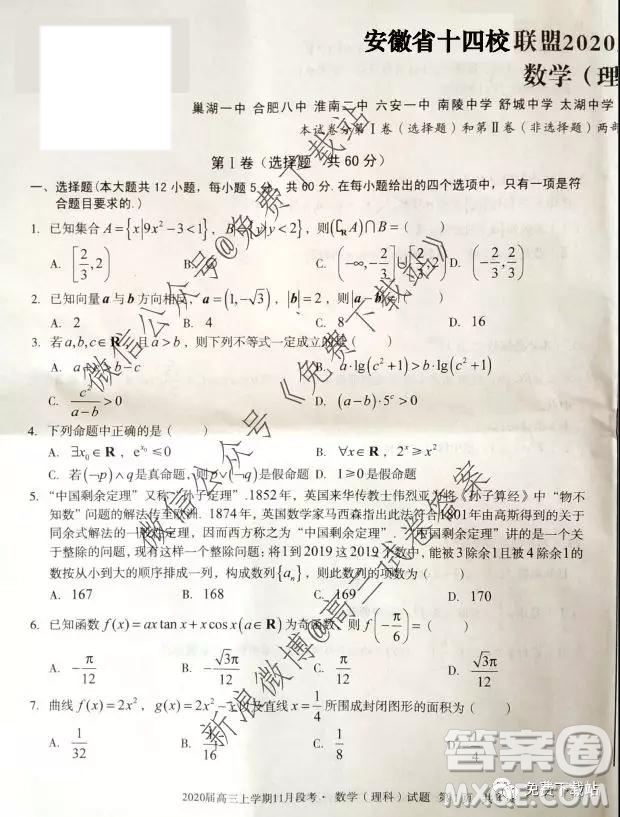 安徽省十四校联盟2020
数学（理
巢湖一中 合肥八中 淮南二中 六安一中 南陵中学 舒城中学 太湖中学
本试卷分第Ⅰ卷（选择题）和第Ⅱ卷（非选择题）两部
第Ⅰ卷（选择题 共60分）
一、选择题(本大题共12小题，每小题5分，共60分.在每小题给出的四个选项中，只有一项是符
合题目要求的.)
1. 已知集合A={x|9x²-3<1}，B={y|y<2}，则(∁RA)∩B=（ ）
A. [2/3,2) B. C. (-∞,-2/3]∪[2/3,2) D. (-2/3,2/3)
2. 已知向量a与b方向相反，a=(1,-√3)，|b|=2，则|a-b|=（ ）
A. 2 B. 4 C. 8 D. 16
3. 若a,b,c∈R，且a>b，则下列不等式一定成立的是（ ）
A. a b-c B. a·lg(c²+1)>b·lg(c²+1)
C. c²/(a-b)>0 D. (a-b)·5ᶜ>0
4. 下列命题中正确的是（ ）
A. ∃x₀∈R，eˣ⁰≤0 B. ∀x∈R，2ˣ≥x²
C. 若(¬p)∧q是真命题，则p∨(¬q)是假命题 D. 1≥0是假命题
5. “中国剩余定理”又称“孙子定理”.1852年，英国来华传教士伟烈亚力将《孙子算经》中“物不
知数”问题的解法传至欧洲.1874年，英国数学家马西森指出此法符合1801年由高斯得到的关于
同余式解法的一般性定理，因而西方称之为“中国剩余定理”.“中国剩余定理”讲的是一个关
于整除的问题，现有这样一个整除问题：将1到2019这2019个数中，能被3除余1且被4除余1的
数按从小到大的顺序排成一列，构成数列{aₙ}，则此数列的项数为（ ）
A. 167 B. 168 C. 169 D. 170
6. 已知函数f(x)=ax tan x+x cos x(a∈R)为奇函数，则f(-π/6)=（ ）
A. -π/12 B. -√3π/12 C. π/12 D. √3π/12
7. 曲线f(x)=2x²，g(x)=2x²-x以及直线x=1/4所围成封闭图形的面积为（ ）
A. 1/32 B. 1/16 C. 1/8 D. 1/4
2020届高三上学期11月段考·数学（理科）试题 第
微信公众号@免费下载站
微信公众号《免费下载站》
新浪微博@高三试卷答案
答案圈
免费下载站